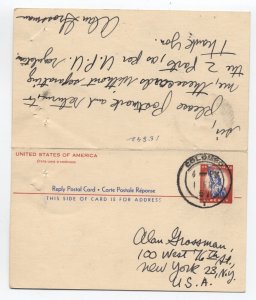 Sir,
please postmark and return to
me, these cards without separating
the 2 parts, as per U.P.U. regulation
Thank You.
Alan Grossman
UNITED STATES OF AMERICA
Reply Postal Card • Carte Postale Réponse
THIS SIDE OF CARD IS FOR ADDRESS
COLOMBO
Alan Grossman,
100 West
New York 23, N.Y.
U.S.A.